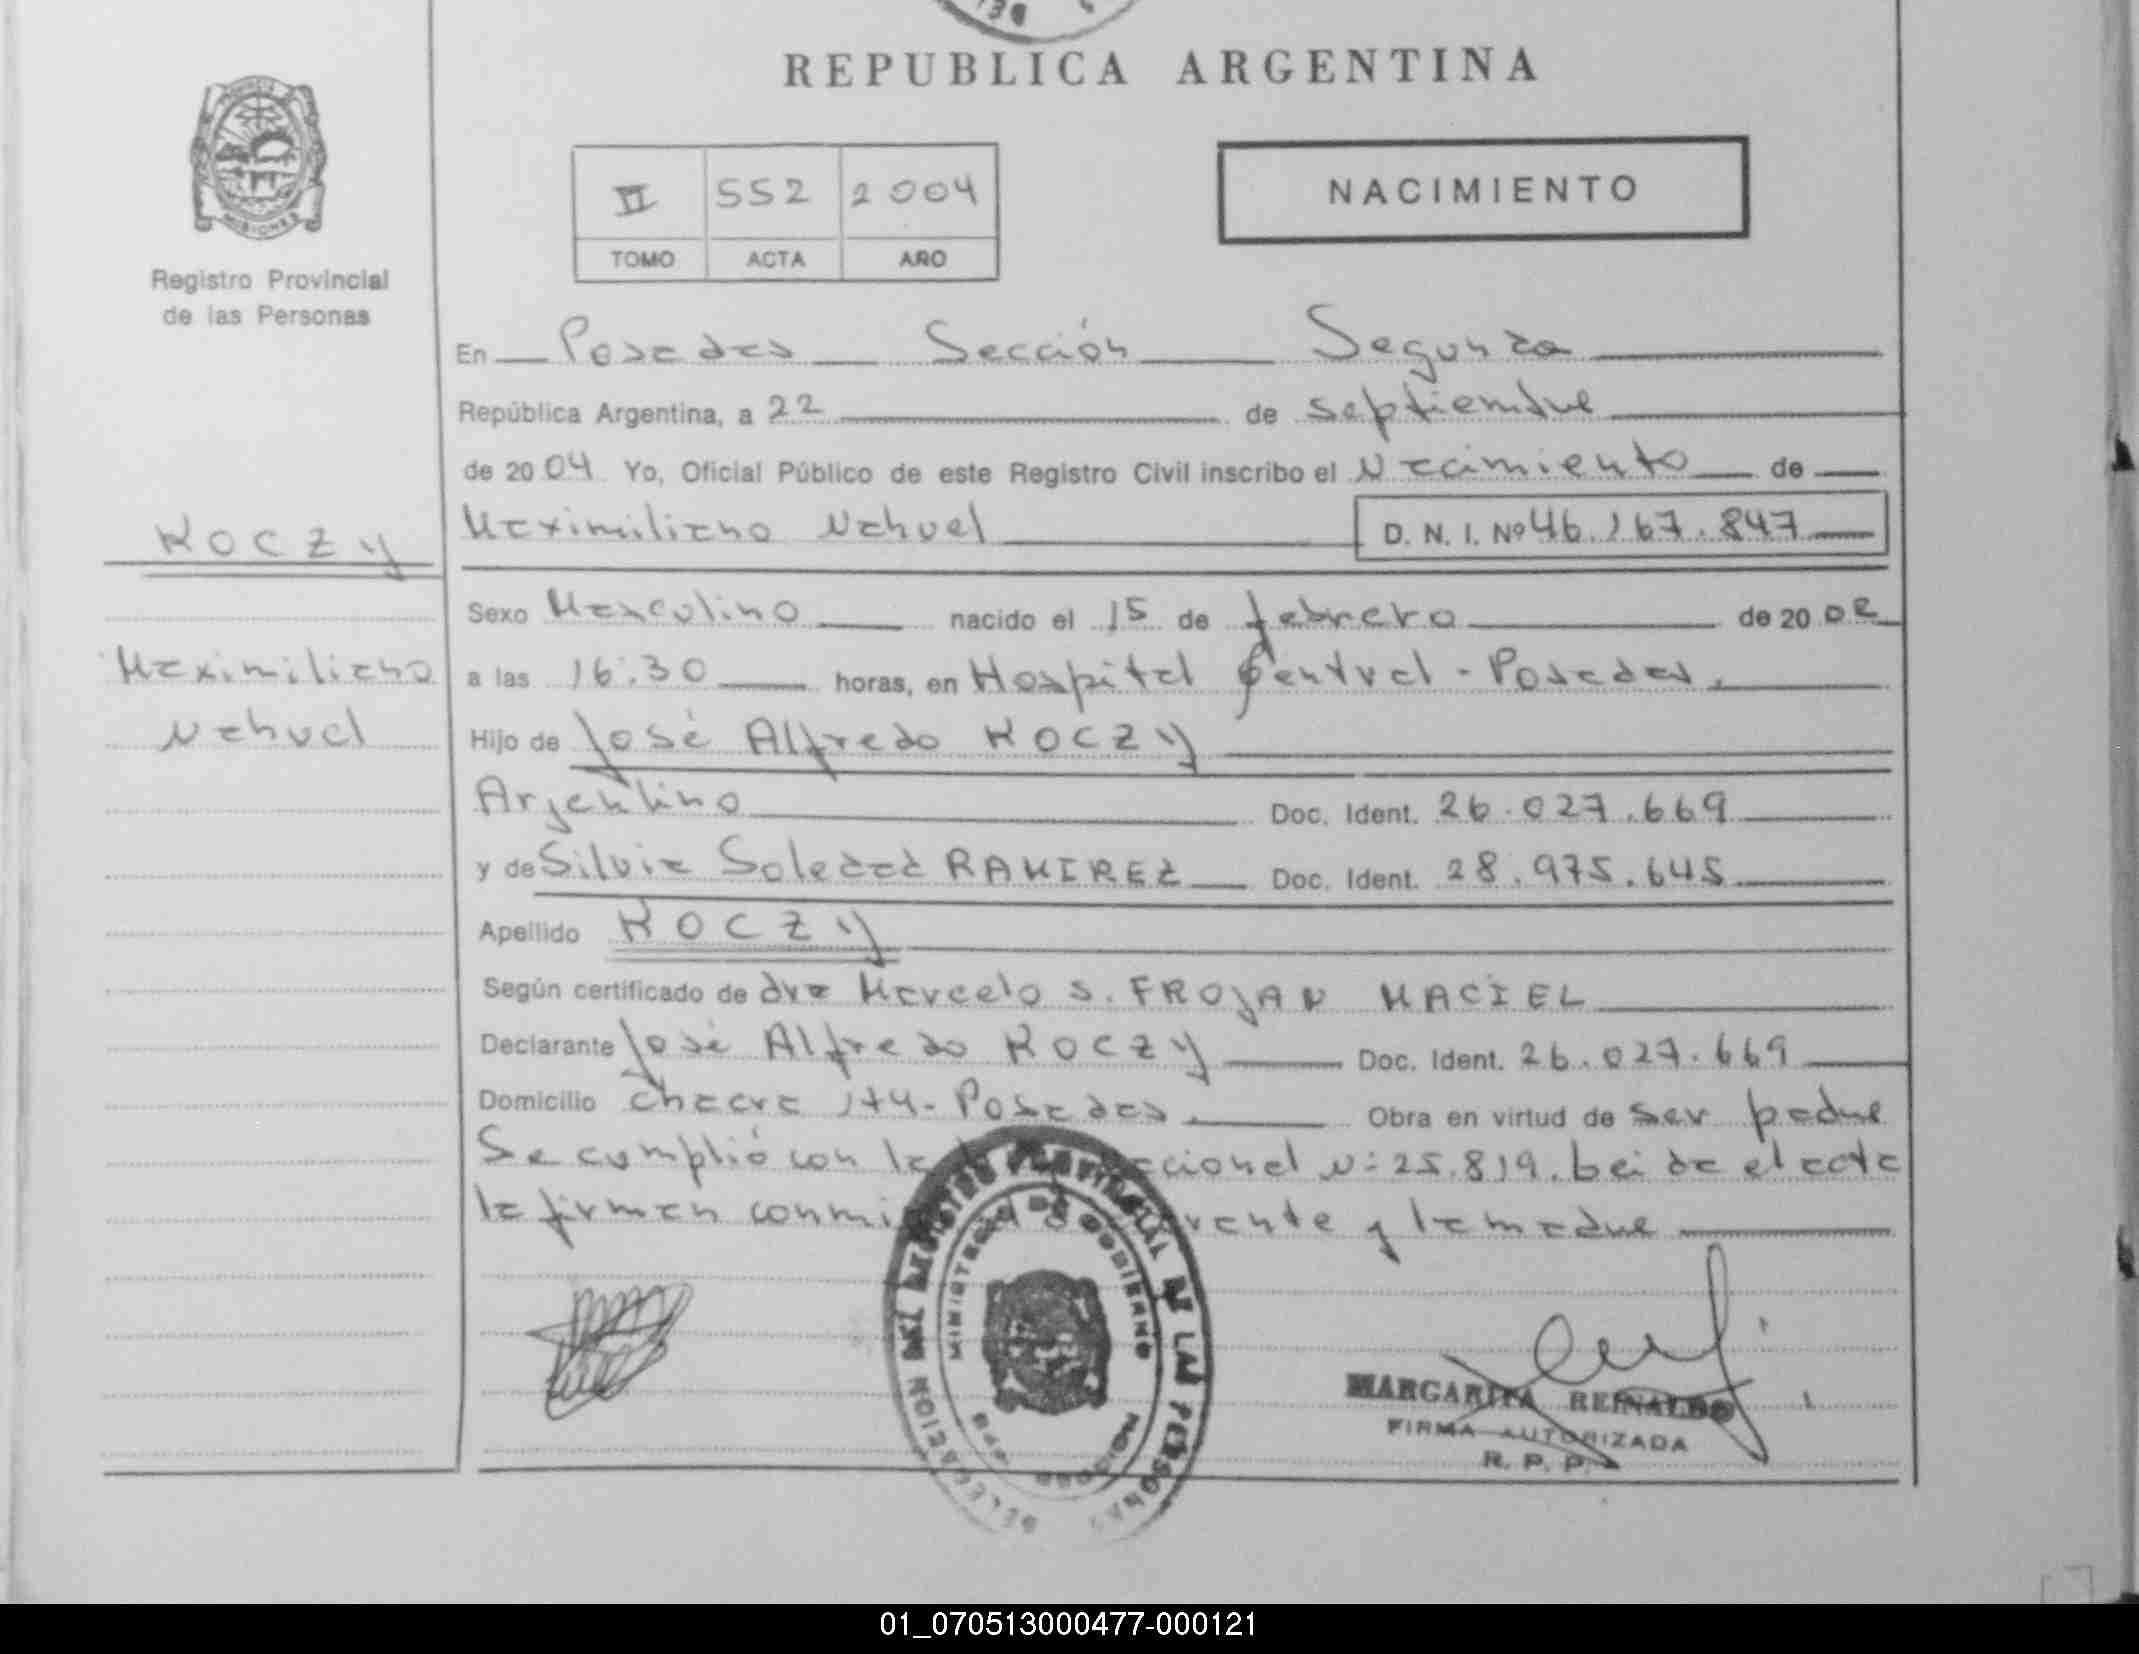 REPUBLICA ARGENTINA
PROVINCIA
MISIONES
Registro Provincial
de las Personas
II 552 2004
TOMO ACTA AÑO
NACIMIENTO
En Posadas Sección Segunda
República Argentina, a 22 de septiembre
de 2004 Yo, Oficial Público de este Registro Civil inscribo el Nacimiento de
Maximiliano Nahuel D. N. I. Nº 46.167.847
KOCZY
Maximiliano
Nahuel
Sexo Masculino nacido el 15 de febrero de 2002
a las 16:30 horas, en Hospital Central - Posadas.
Hijo de José Alfredo KOCZY
Argentino Doc. Ident. 26.027.669
y de Silvia Soledad RAMIREZ Doc. Ident. 28.975.645
Apellido KOCZY
Según certificado de dra Marcelo S. FROJAN MACIEL
Declarante José Alfredo KOCZY Doc. Ident. 26.027.669
Domicilio chacra 174 - Posadas. Obra en virtud de ser padre
Se cumplió con la Nº 25.819. Leida el acta
la firman conmigo y la madre
MINISTERIO DE GOBIERNO
MARGARITA REINALDO
FIRMA AUTORIZADA
R. P. P.
01_070513000477-000121